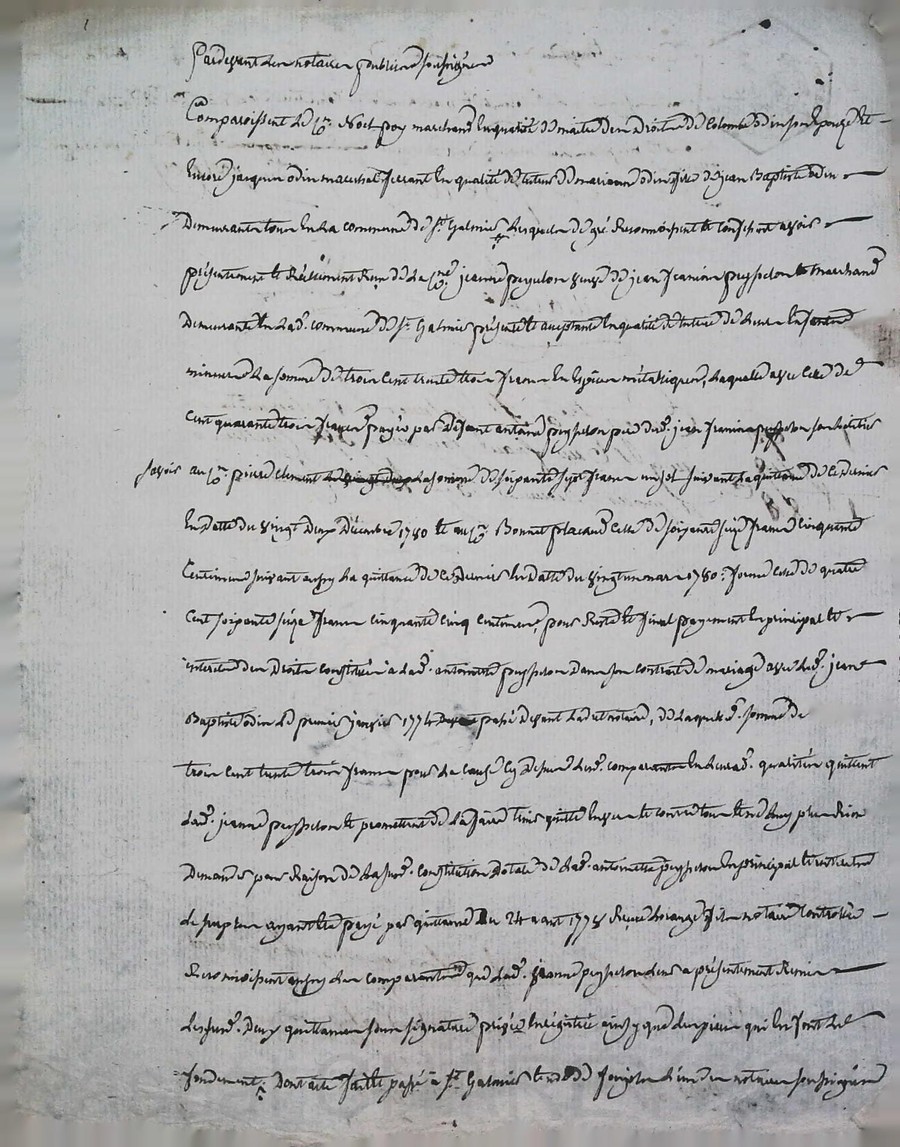 Pardevant les notaires publics soussignés
Comparoissent le Cn. Noel poy marchand en qualité de maitre des droits de Colombe odin son épouze et
encore jacques odin marechal ferrant en qualité de tuteur de marianne odin fille de jean Baptiste odin
Demeurants tous en la commune de St. Galmier, lesquels de gré Reconnoissent et confessent avoir
présentement et Réellement Reçu de la Cne. jeanne veuve de jean Jeanin peysselon marchand
Demeurante en lad. commune de St. Galmier présente et acceptante en qualité de tutrice de leurs enfants
mineurs la somme de trois cent trente trois francs en espèces métalliques, laquelle avec celle de
cent quarante trois francs payée par défunt antoine peysselon père dud. jean Jeanin peysselon
savoir au Cn. pierre clement la somme de soixante sept francs suivant la quittance de ce dernier
en datte du vingt Deux Décembre 1780 et au Cn. Bonnet celle de soixante seize francs cinquante
Centimes suivant aussy la quittance de ce dernier en datte du vingt un mars 1780: forme celle de quatre
cent soixante seize francs cinquante cinq centimes, pour Reste et final payement en principal et
interets des Droits constitués à lad. antoinette peysselon dans son contrat de mariage avec led. jean
Baptiste odin le premier janvier 1774 passé devant led. notaire, de laquelle d. somme de
trois cent trente trois francs pour la cause cy dessus lesd. comparants en leursd. qualités quittent
lad. jeanne peysselon et promettent de la faire tenir quitte envers et contre tous et ne luy plus Rien
Demander pour Raison de la susd. constitution dotale de lad. antoinette peysselon en principal et interets
le surplus ayant été payé par quittance du 24 aout 1778 Reçue notaire controlée
Reconnoissent aussy les comparants que lad. jeanne peysselon leur a présentement Remis
les susd. Deux quittances sous signature privée enregistrée ainsy que les pieces qui en font le
fondement. Dont acte fait et passé à St. Galmier l'un des notaires soussignés